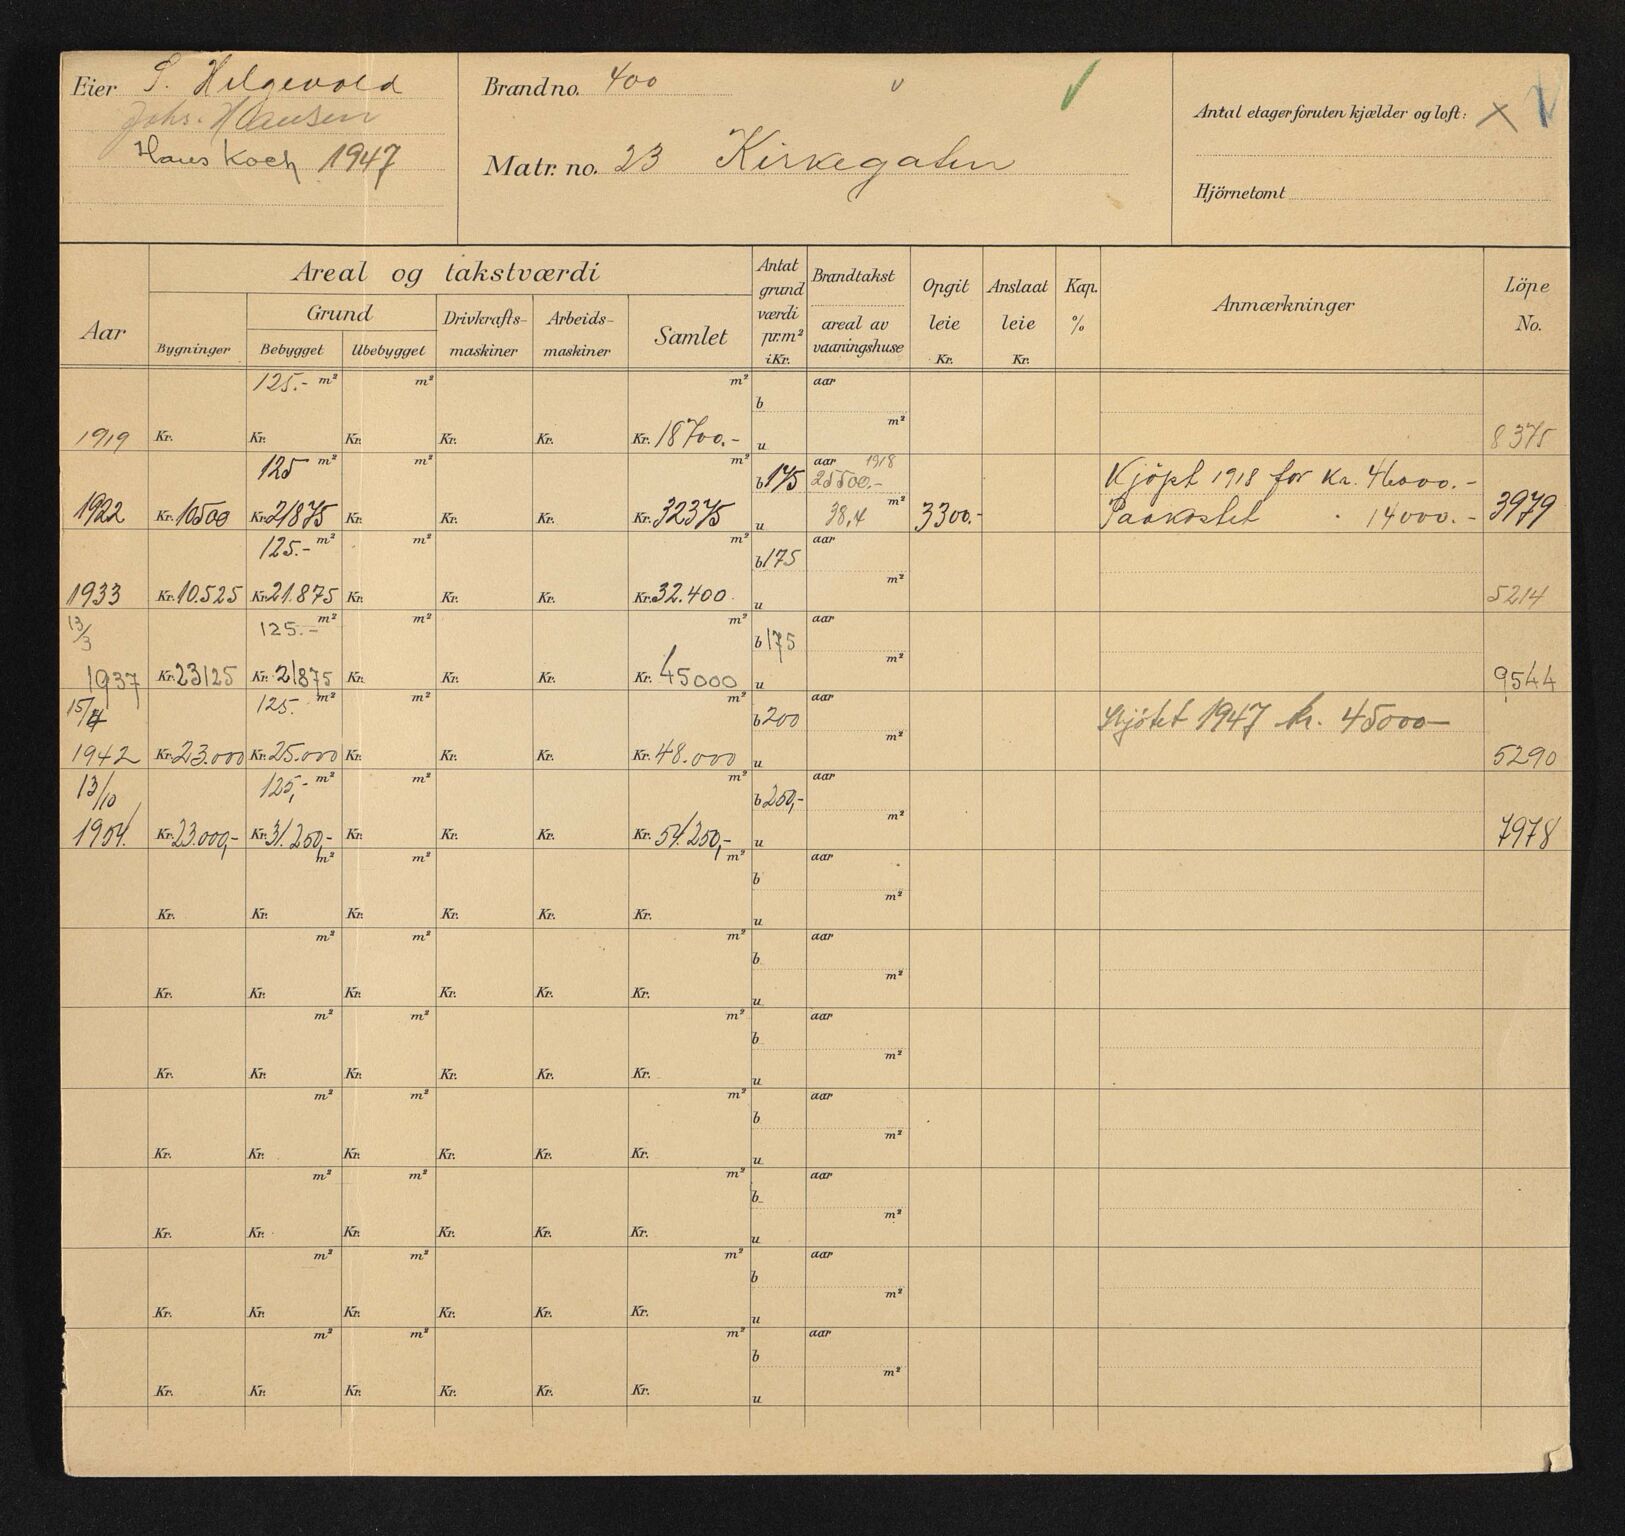 Eier S. Helgevold
Johs. Hansen
Hans Koch 1947
Brand no. 400
Matr. no. 23 Kirkegaten
Antal etager foruten kjælder og loft: X
Hjörnetomt
Aar
Areal og takstværdi
Bygninger
Grund
Bebygget Ubebygget
Drivkrafts-maskiner
Arbeids-maskiner
Samlet
Antat grund værdi pr. m² i Kr.
Brandtakst
areal av vaaningshuse
Opgit leie Kr.
Anslaat leie Kr.
Kap. %
Anmærkninger
Löpe No.
125.- m² m² m² b aar
1919 Kr. Kr. Kr. Kr. Kr. Kr. 18700.- u m² 8375
125 m² m² m² b 175 aar 1918 25500.- Kjöpt 1918 for Kr. 46000.-
1922 Kr. 10500 Kr. 21875 Kr. Kr. Kr. Kr. 32375 u 38,4 m² 3300.- Paakostet " 14000.- 3979
125.- m² m² m² b 175 aar
1933 Kr. 10.525 Kr. 21.875 Kr. Kr. Kr. Kr. 32.400 u m² 5214
13/3 125.- m² m² m² b 175 aar
1937 Kr. 23125 Kr. 21875 Kr. Kr. Kr. Kr. 45000 u m² 9544
15/4 125. m² m² m² b 200 aar Skjötet 1947 kr. 45000-
1942 Kr. 23.000 Kr. 25.000 Kr. Kr. Kr. Kr. 48.000 u m² 5290
13/10 125,- m² m² m² b 250,- aar
1954. Kr. 23.000,- Kr. 31.250,- Kr. Kr. Kr. Kr. 54.250,- u m² 7978
m² m² m² b aar
Kr. Kr. Kr. Kr. Kr. Kr. u m²
m² m² m² b aar
Kr. Kr. Kr. Kr. Kr. Kr. u m²
m² m² m² b aar
Kr. Kr. Kr. Kr. Kr. Kr. u m²
m² m² m² b aar
Kr. Kr. Kr. Kr. Kr. Kr. u m²
m² m² m² b aar
Kr. Kr. Kr. Kr. Kr. Kr. u m²
m² m² m² b aar
Kr. Kr. Kr. Kr. Kr. Kr. u m²
m² m² m² b aar
Kr. Kr. Kr. Kr. Kr. Kr. u m²